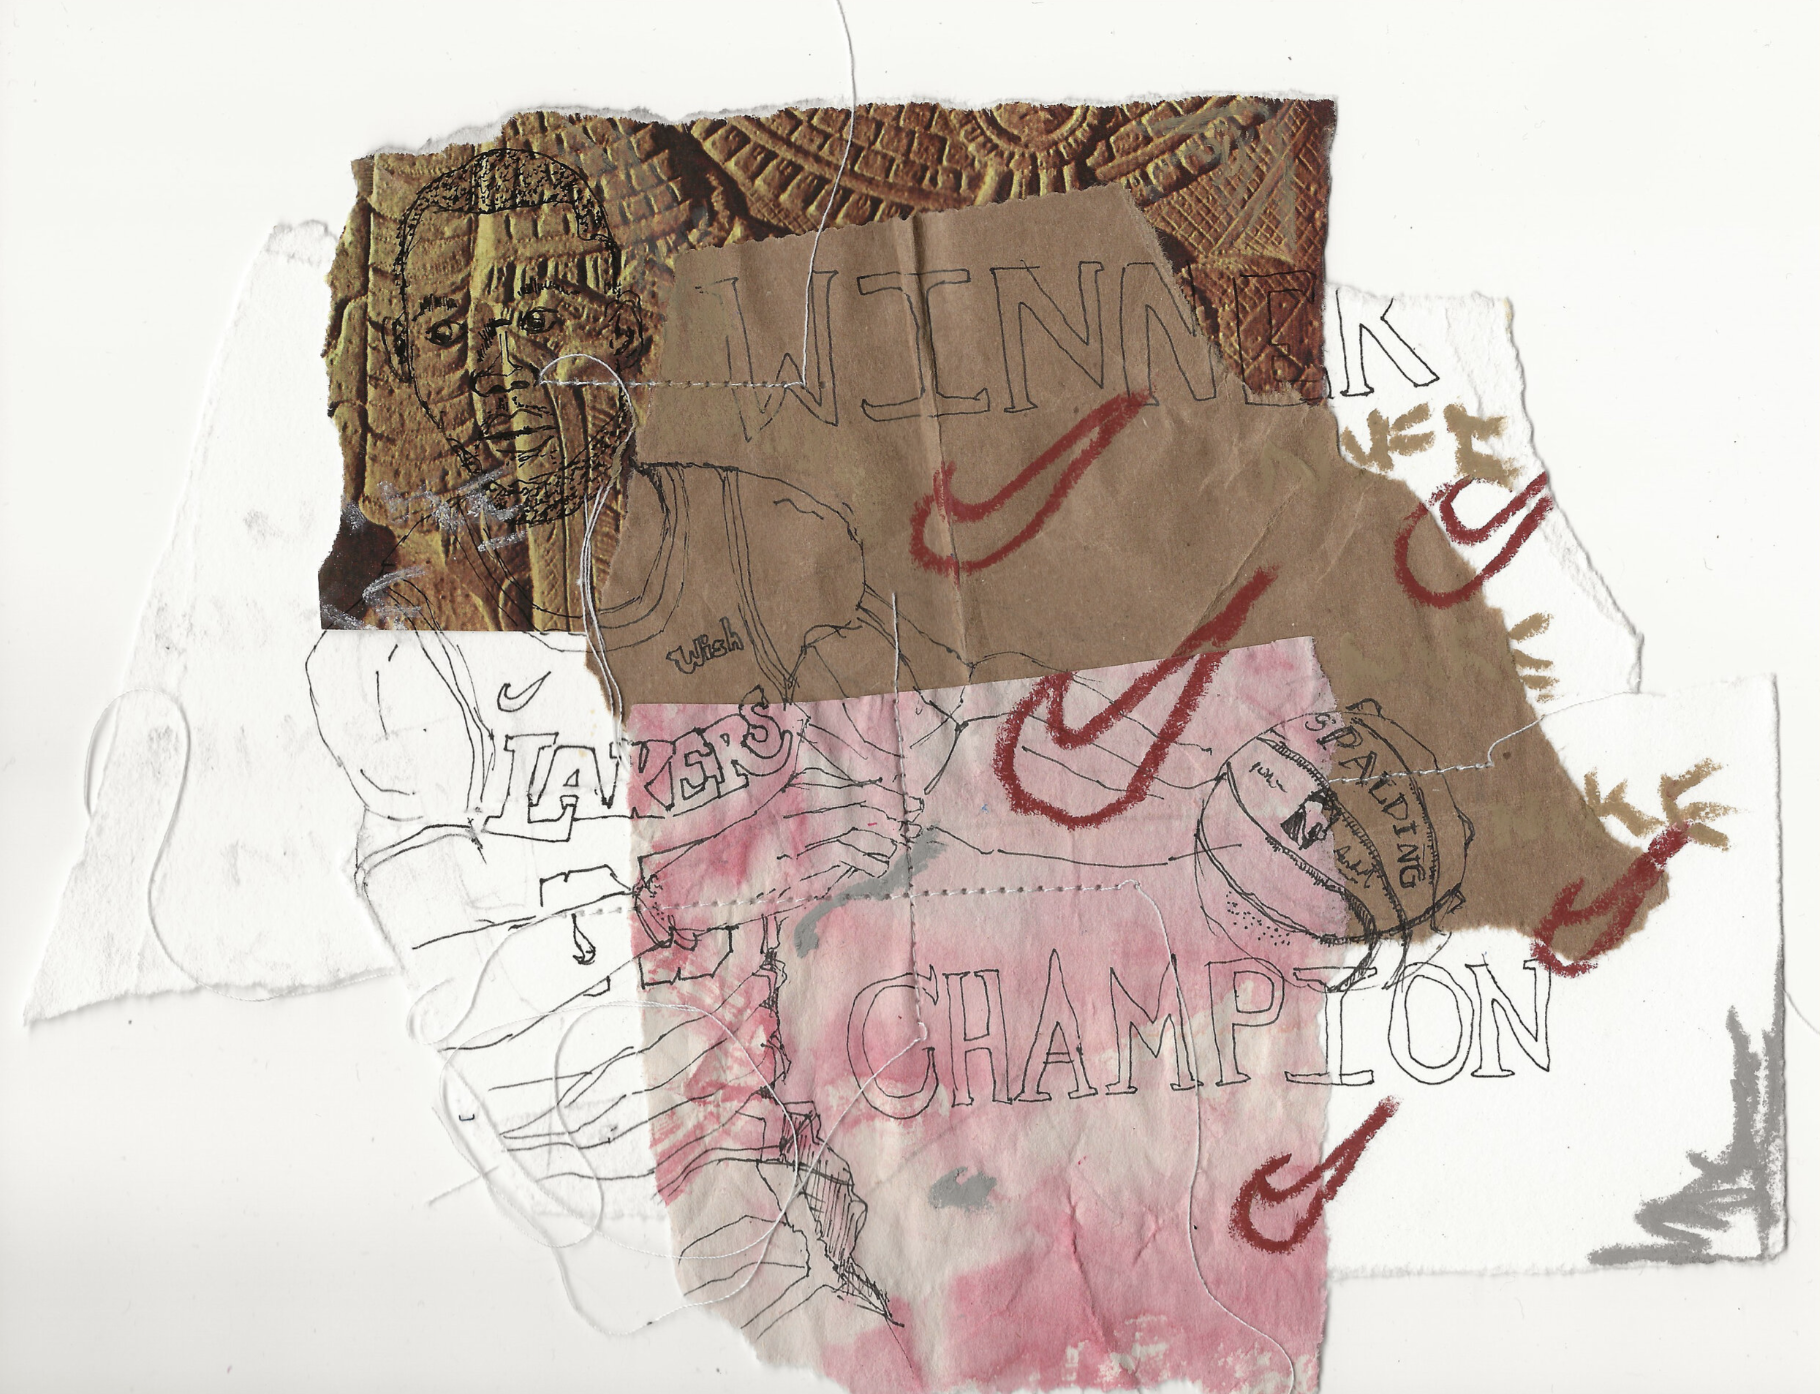 WINNER
Wish
LAKERS
SPALDING
CHAMPION